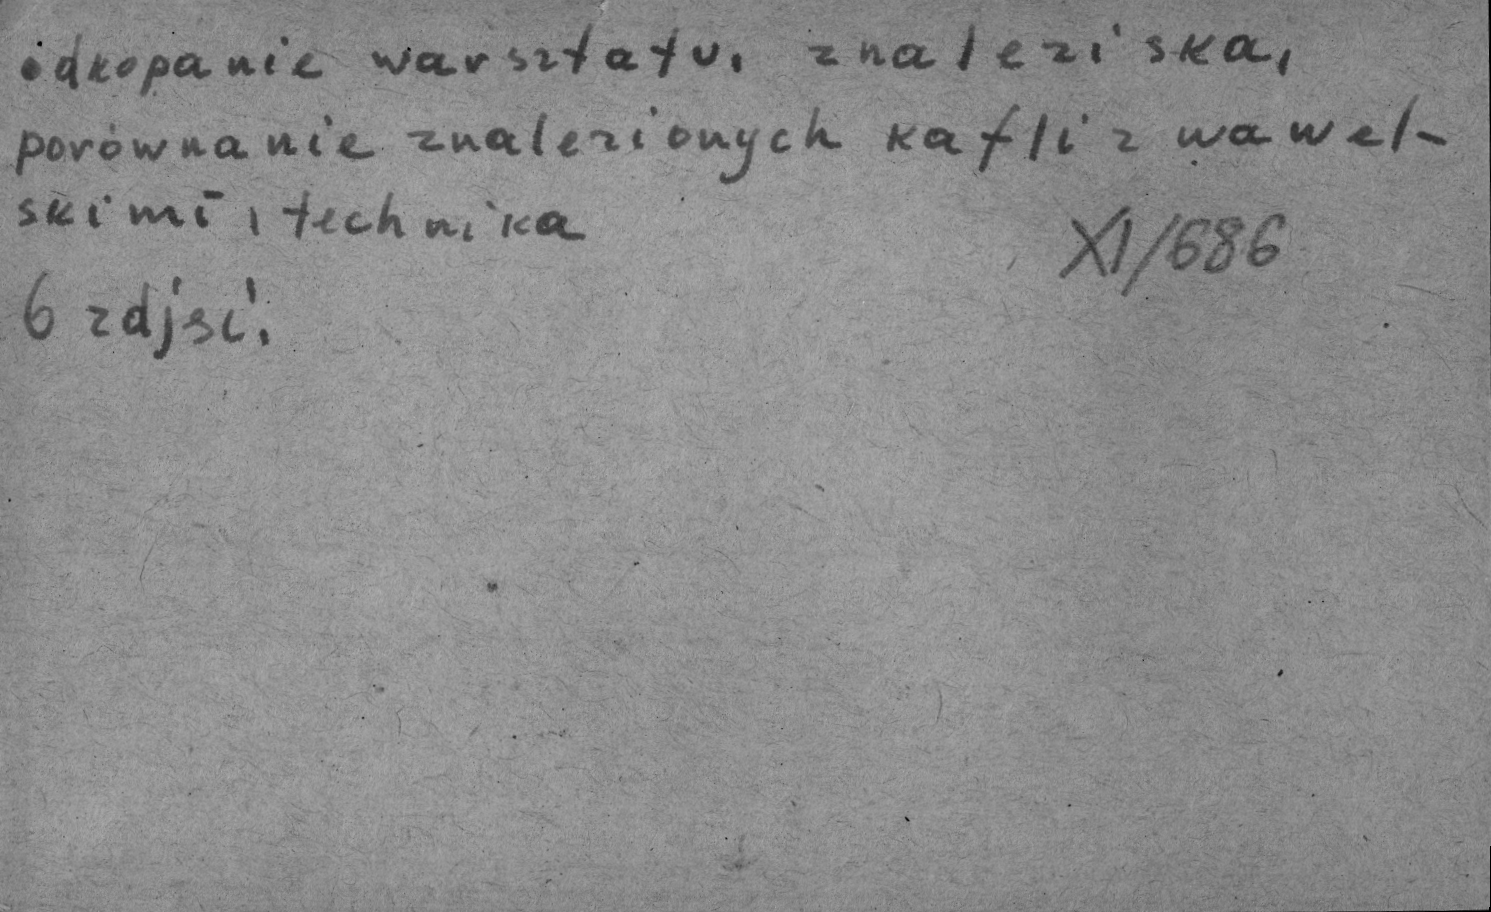 odkopanie warsztatu, znaleziska,
porównanie znalezionych kafli z wawel-
skimi, technika
XI/686
6 zdjęć.